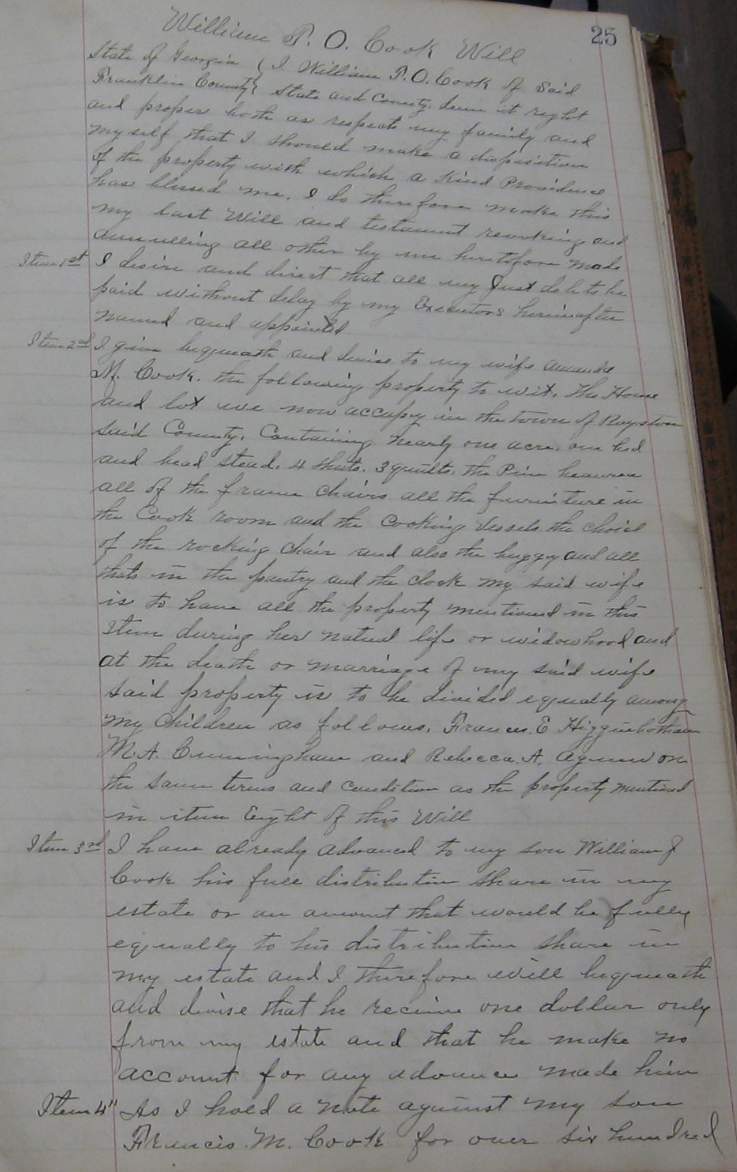 25
William P. O. Cook Will
State of Georgia { I William P. O. Cook of Said
Franklin County { State and County deem it right
and proper both as respects my family and
my self that I should make a disposition
of the property with which a Kind Providence
has blessed me. I do therefore make this
my last Will and testament revoking and
annulling all other by me heretofore made
Item 1st I desire and direct that all my Just debts be
paid without delay by my Executors hereinafter
named and appointed
Item 2nd I give bequeath and devise to my wife Amanda
M. Cook. the following property to wit. The House
and lot we now occupy in the town of Royston
said County. Containing nearly one acre. one bed
and bead stead. 4 Sheets. 3 quilts. the Pine beaurea
all of the frame chairs all the furniture in
the Cook room and the cooking vessels the choice
of the rocking chair and also the buggy and all
thats in the pantry and the clock my said wife
is to have all the property mentioned in this
Item during her natural life or widowhood and
at the death or marriage of my said wife
said property is to be divided equally among
my children as follows. Frances. E Higginbotham
M. A. Cunningham and Rebecca. A. on
the same terms and condition as the property mentioned
in item Eight of this Will
Item 3rd I have already advanced to my son William J
Cook his full distributive share in my
estate or an amount that would be fully
equally to his distributive share in
my estate and I therefore will bequeath
and devise that he receive one dollar only
from my estate and that he make no
account for any advance made him
Item 4" As I hold a note against my son
Francis. M. Cook for over six hundred